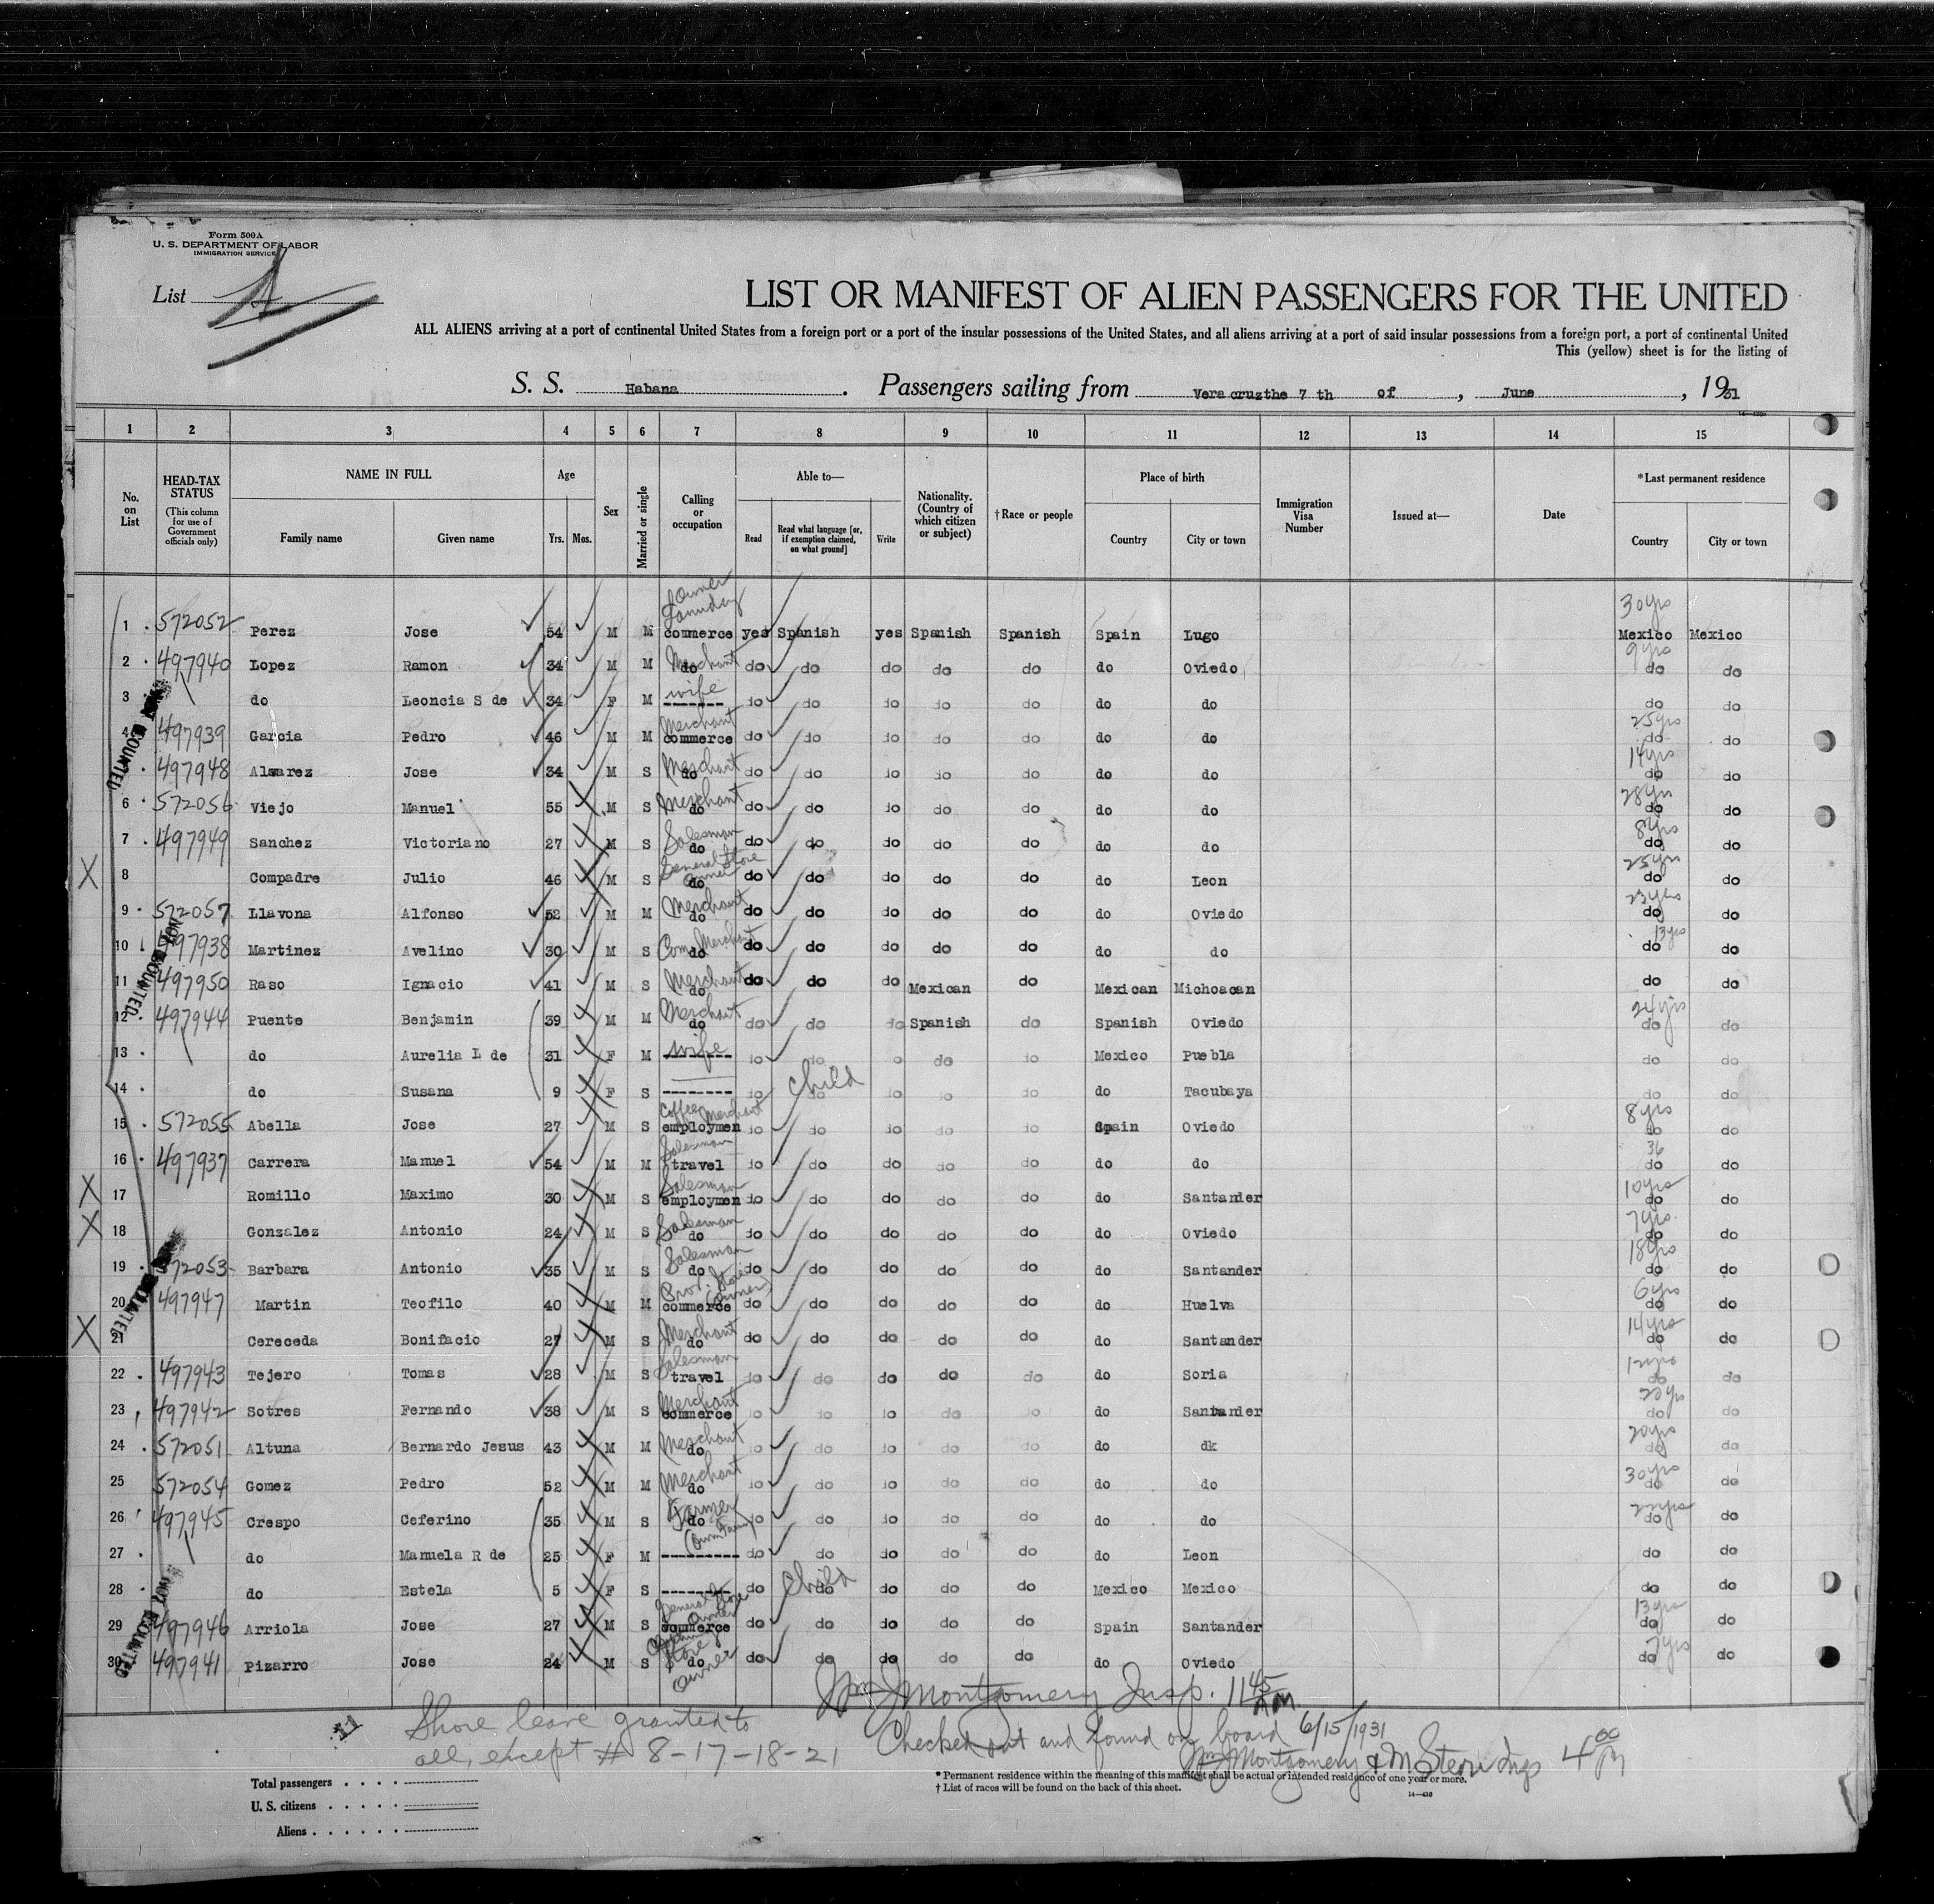 Form 500A
U. S. DEPARTMENT OF LABOR
IMMIGRATION SERVICE
List
LIST OR MANIFEST OF ALIEN PASSENGERS FOR THE UNITED
ALL ALIENS arriving at a port of continental United States from a foreign port or a port of the insular possessions of the United States, and all aliens arriving at a port of said insular possessions from a foreign port, a port of continental United
This (yellow) sheet is for the listing of
S. S. Habana. Passengers sailing from Vera cruz the 7 th of, June, 1931
1 2 3 4 5 6 7 8 9 10 11 12 13 14 15
No. on List
HEAD-TAX STATUS
(This column for use of Government officials only)
NAME IN FULL
Family name
Given name
Age
Yrs.
Mos.
Sex
Married or single
Calling or occupation
Able to—
Read
Read what language [or, if exemption claimed, on what ground]
Write
Nationality. (Country of which citizen or subject)
†Race or people
Place of birth
Country
City or town
Immigration Visa Number
Issued at—
Date
*Last permanent residence
Country
City or town
Owner Laundry 30yrs
1 572052 Perez Jose 54 M M commerce yes Spanish yes Spanish Spanish Spain Lugo Mexico Mexico
2 497940 Lopez Ramon 34 M M Merchant do do do do do do do Oviedo 9yrs do do
3 do Leoncia S de 34 F M wife ------- do do do do do do do do do
4 497939 Garcia Pedro 46 M M Merchant commerce do do do do do do do 25yrs do do
497948 Alvarez Jose 34 M S Merchant do do do do do do do do 14yrs do do
6 572056 Viejo Manuel 55 M S Merchant do do do do do do do do 28yrs do do
7 497949 Sanchez Victoriano 27 M S Salesman do do do do do do do do 8yrs do do
X 8 Compadre Julio 46 M S General Store Owner do do do do do do do Leon 25yrs do do
9 572057 Llavona Alfonso 52 M M Merchant do do do do do do do Oviedo 23yrs do do
10 497938 Martinez Avelino 30 M S Com Merchant do do do do do do do do 13yrs do do
11 497950 Raso Ignacio 41 M S Merchant do do do do Mexican do Mexican Michoacan do do
12 497944 Puente Benjamin 39 M M Merchant do do do do Spanish do Spanish Oviedo 24yrs do do
13 do Aurelia L de 31 F M wife ------- do do do do do Mexico Puebla do do
14 do Susana 9 F S -------- do child do do do do do Tacubaya do do
15 572055 Abella Jose 27 M S Coffee Merchant employmen do do do do do Spain Oviedo 8yrs do do
16 497937 Carrera Manuel 54 M M Salesman travel do do do do do do do 36 do do
X 17 Romillo Maximo 30 M S Salesman employmen do do do do do do Santander 10yrs do do
X 18 Gonzalez Antonio 24 M S Salesman do do do do do do do Oviedo 7yrs do do
19 572053 Barbara Antonio 35 M S Salesman do do do do do do do Santander 18yrs do do
20 497947 Martin Teofilo 40 M M Prov. Store (owner) commerce do do do do do do Huelva 6yrs do do
X 21 Cereceda Bonifacio 27 M S Merchant do do do do do do do Santander 14yrs do do
22 497943 Tejero Tomas 28 M S Salesman travel do do do do do do Soria do do
23 497942 Sotres Fernando 38 M S Merchant commerce do do do do do do Santander 20yrs do do
24 572051 Altuna Bernardo Jesus 43 M M Merchant do do do do do do do dk 20yrs do do
25 572054 Gomez Pedro 52 M M Merchant do do do do do do do do 30yrs do do
26 497945 Crespo Ceferino 35 M S Farmer do do do do do do do do 22yrs do do
27 do Manuela R de 25 F M --------- do do do do do do Leon do do
28 do Estela 5 F S -------- do child do do do do Mexico Mexico do do
29 497946 Arriola Jose 27 M S General Store Owner commerce do do do do do Spain Santander 13yrs do do
30 497941 Pizarro Jose 24 M S Store Owner do do do do do do do Oviedo 7yrs do do
NOT COUNTED
NOT COUNTED
NOT COUNTED
NOT COUNTED
Wm J Montgomery Insp. 11 45 AM.
11
Shore leave granted to
all, except # 8-17-18-21
Checked out and found on board 6/15/1931
Wm J Montgomery & M Stern Insps 4 00 PM
Total passengers
U. S. citizens
Aliens
* Permanent residence within the meaning of this manifest shall be actual or intended residence of one year or more.
† List of races will be found on the back of this sheet.
14—430